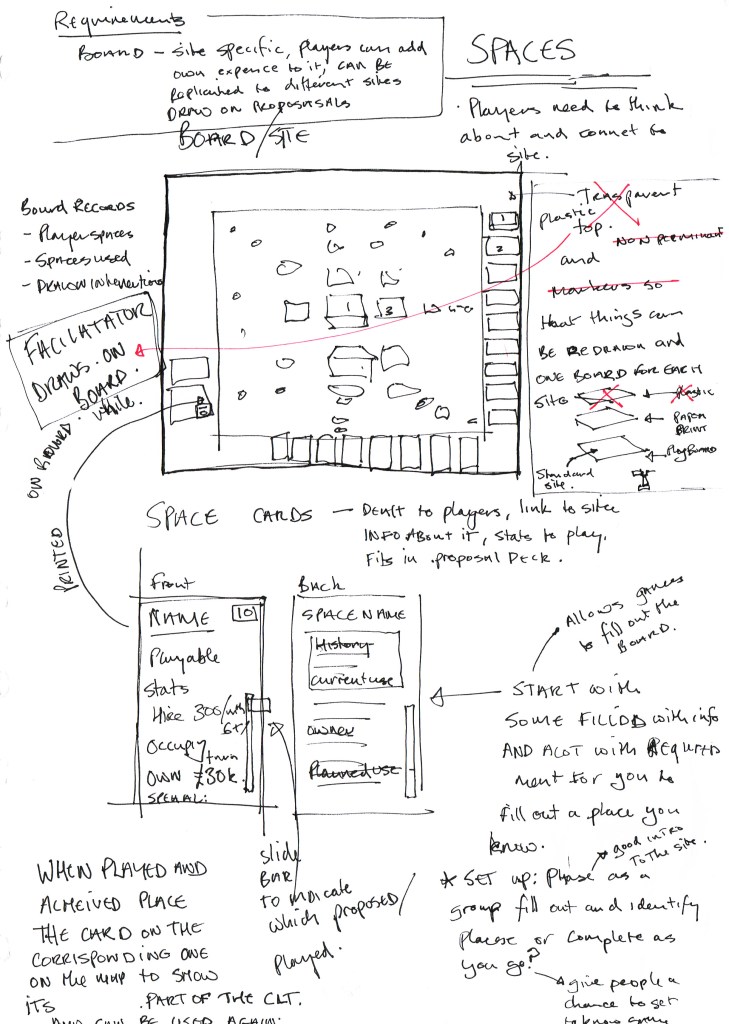 Requirements
BOARD – site specific, players can add
own expence to it, CAN BE
Replicated to different sites
DRAW ON PROPOSASALS
BOARD/SITE
SPACES
· Players need to think
about and connet to
site.
Board RECORDS
- Player spaces
- Spaces used
- DRAWN interventions
FACILATATOR
DRAWS ON
BOARD.
while.
ON BOARD
PRINTED
1
2
1
3
10
Transparent
plastic
top.
NON PERMINANT
and
Markers so
that things can
BE REDRAWN and
ONE BOARD FOR EACH
SITE
plastic
PAPER
PRINT
Play Board
Standard
site.
SPACE CARDS – Dealt to players, link to sites
INFO About it, stats to play.
Fits in proposal Deck.
Front
NAME 10
Playable
stats
Hire 300/mth
6+/
Occupy/
turn
OWN £30k.
SPECIAL:
Back
SPACE NAME
History
current use
owner
Planned use
Allows games
to fill out the
BOARD.
START with
SOME FILLDD with info
AND ALOT with REQUIRED
ment for you to
fill out a place you
know.
good intro
To the site.
* SET up: Phase as a
group fill out and identify
placese or complete as
you go?
give people a
chance to get
to know
slide
BAR
to indicate
which proposed/
played.
WHEN PLAYED AND
ACHEIVED PLACE
THE CARD ON THE
CORRISPONDING ONE
ON the MAP TO SHOW
ITS PART OF THE CLT.
AND CAN BE USED AGAIN.